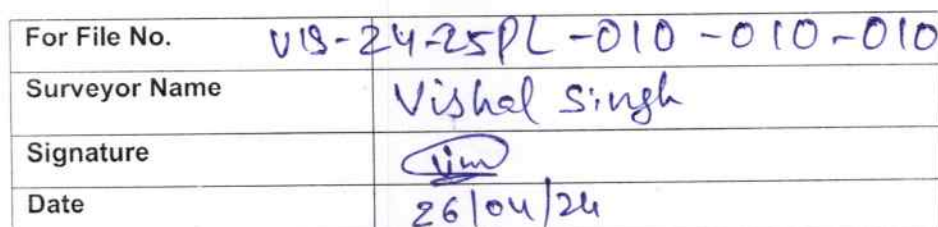 For File No. VIS-24-25PL-010-010-010
Surveyor Name Vishal Singh
Signature
Date 26/04/24